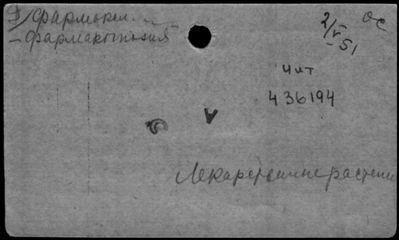 фармакол.
— фармакогнозия
2/V-51
ОС
Чит
436194
А
Лекарственные растени